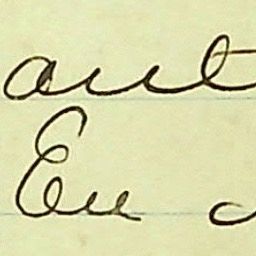 aut
Eu